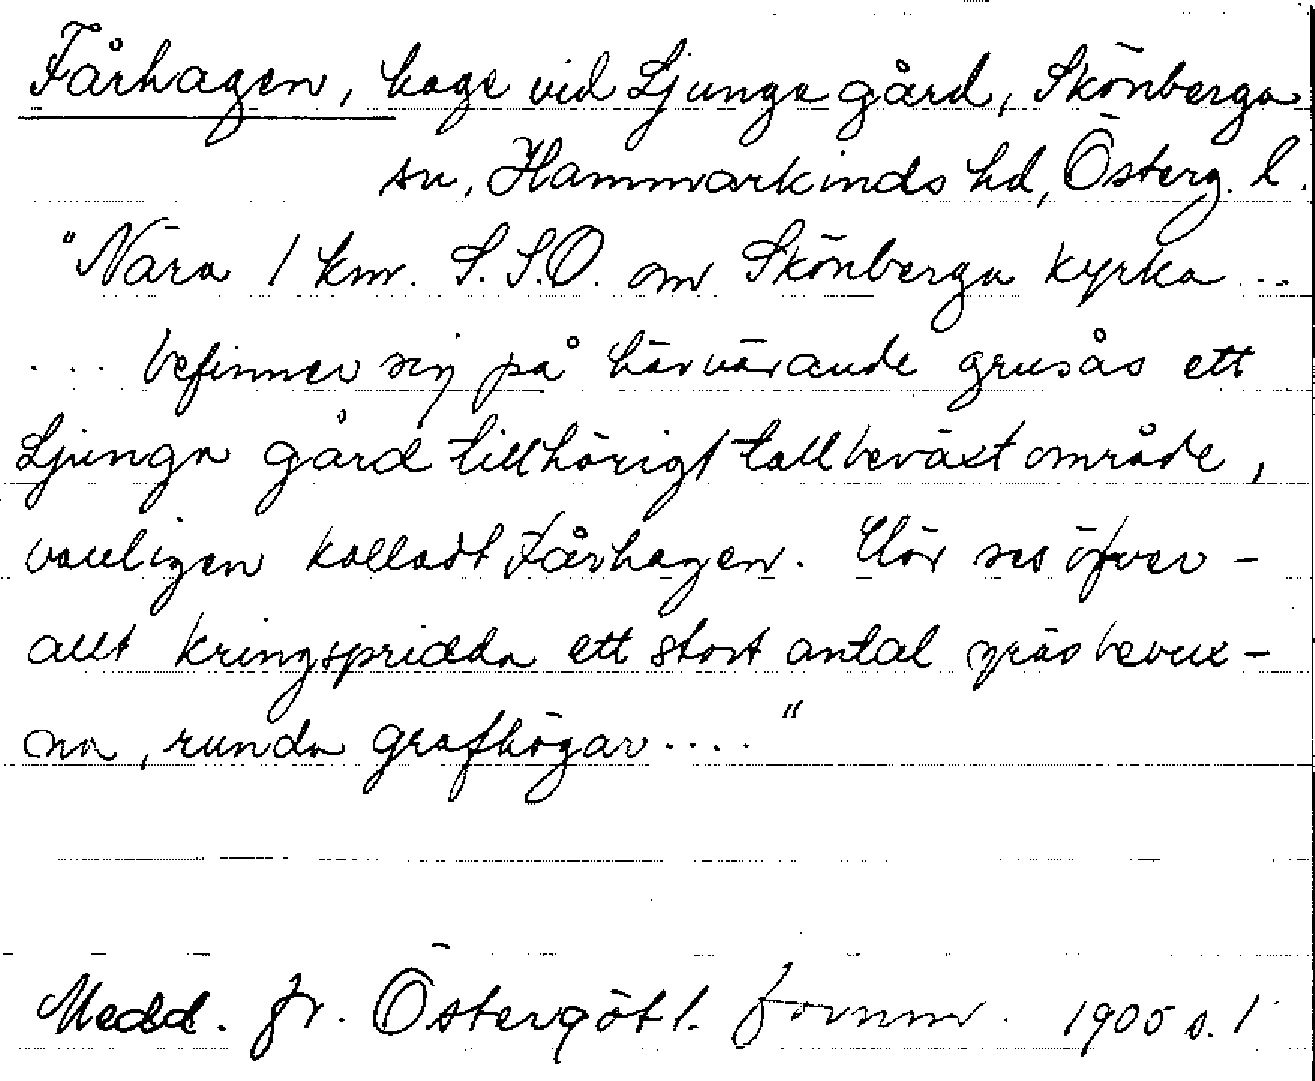 Fårhagen, hage vid Ljunga gård, Skönberga
sn, Hammarkinds hd, Österg. l.
"Nära 1 km. S.S.O. om Skönberga kyrka ..
... befinner sig på härvarande grusås ett
Ljunga gård tillhörigt tallbeväxt område,
vanligen kalladt Fårhagen. Här ses öfver-
allt kringspridda ett stort antal gräsbevux-
na, runda grafhögar...."
Medd. fr. Östergötl. fornm. 1905 s. 1